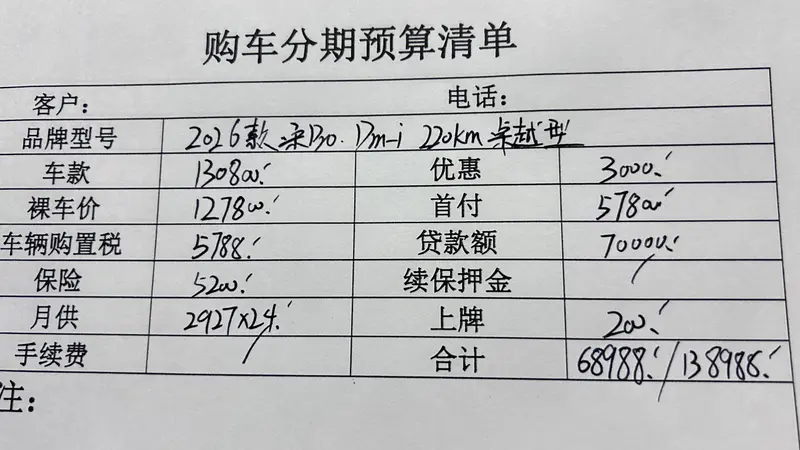 购车分期预算清单
客户: 电话:
品牌型号 2026款宋Pro. Dm-i 220km 卓越型
车款 130800. 优惠 3000.
裸车价 127800. 首付 57800.
车辆购置税 5788. 贷款额 70000.
保险 5200. 续保押金 /
月供 2927×24. 上牌 200.
手续费 / 合计 68988./138988.
注: